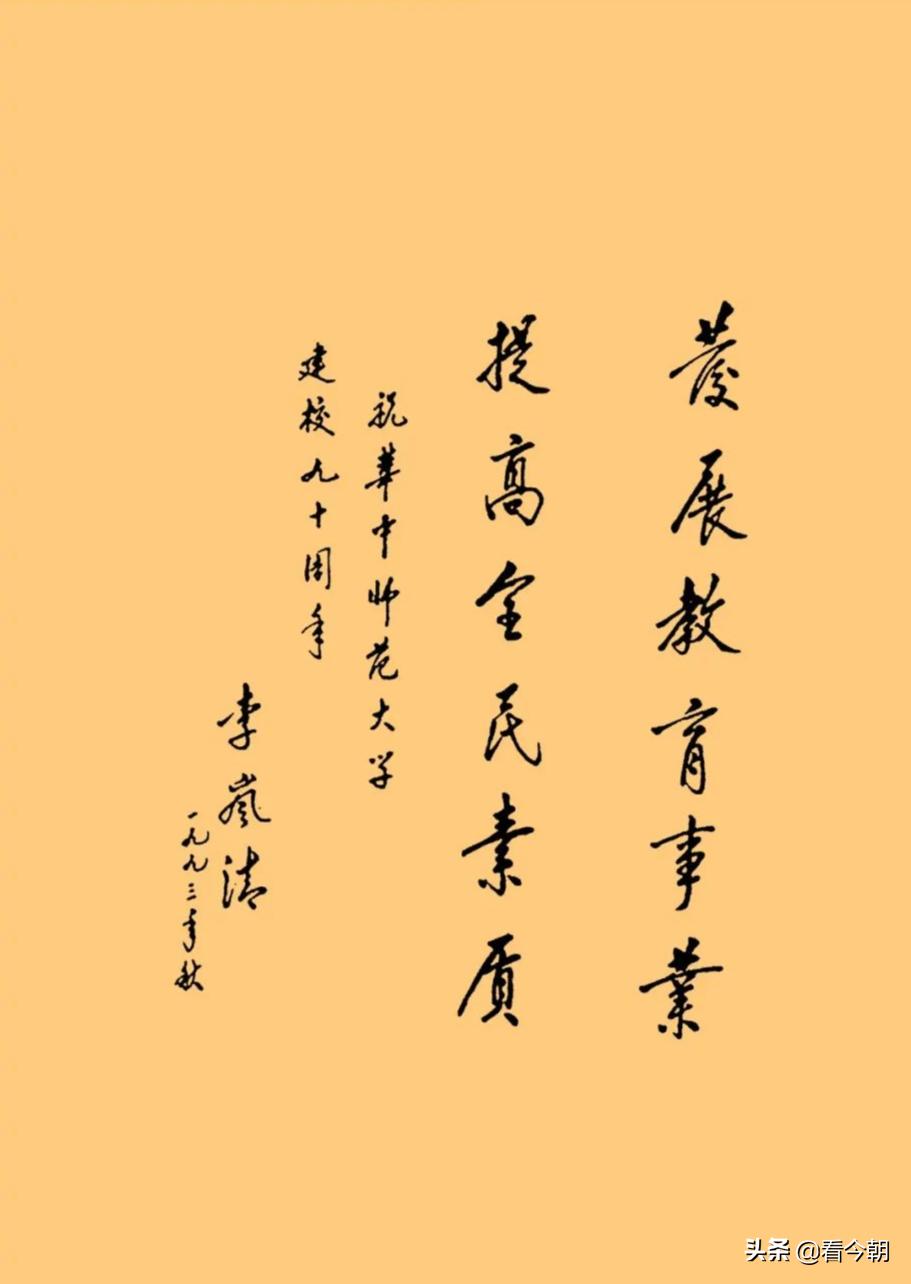 發展教育事業
提高全民素质
祝華中师范大学
建校九十周年
李嵐清
一九九三年秋
头条 @看今朝